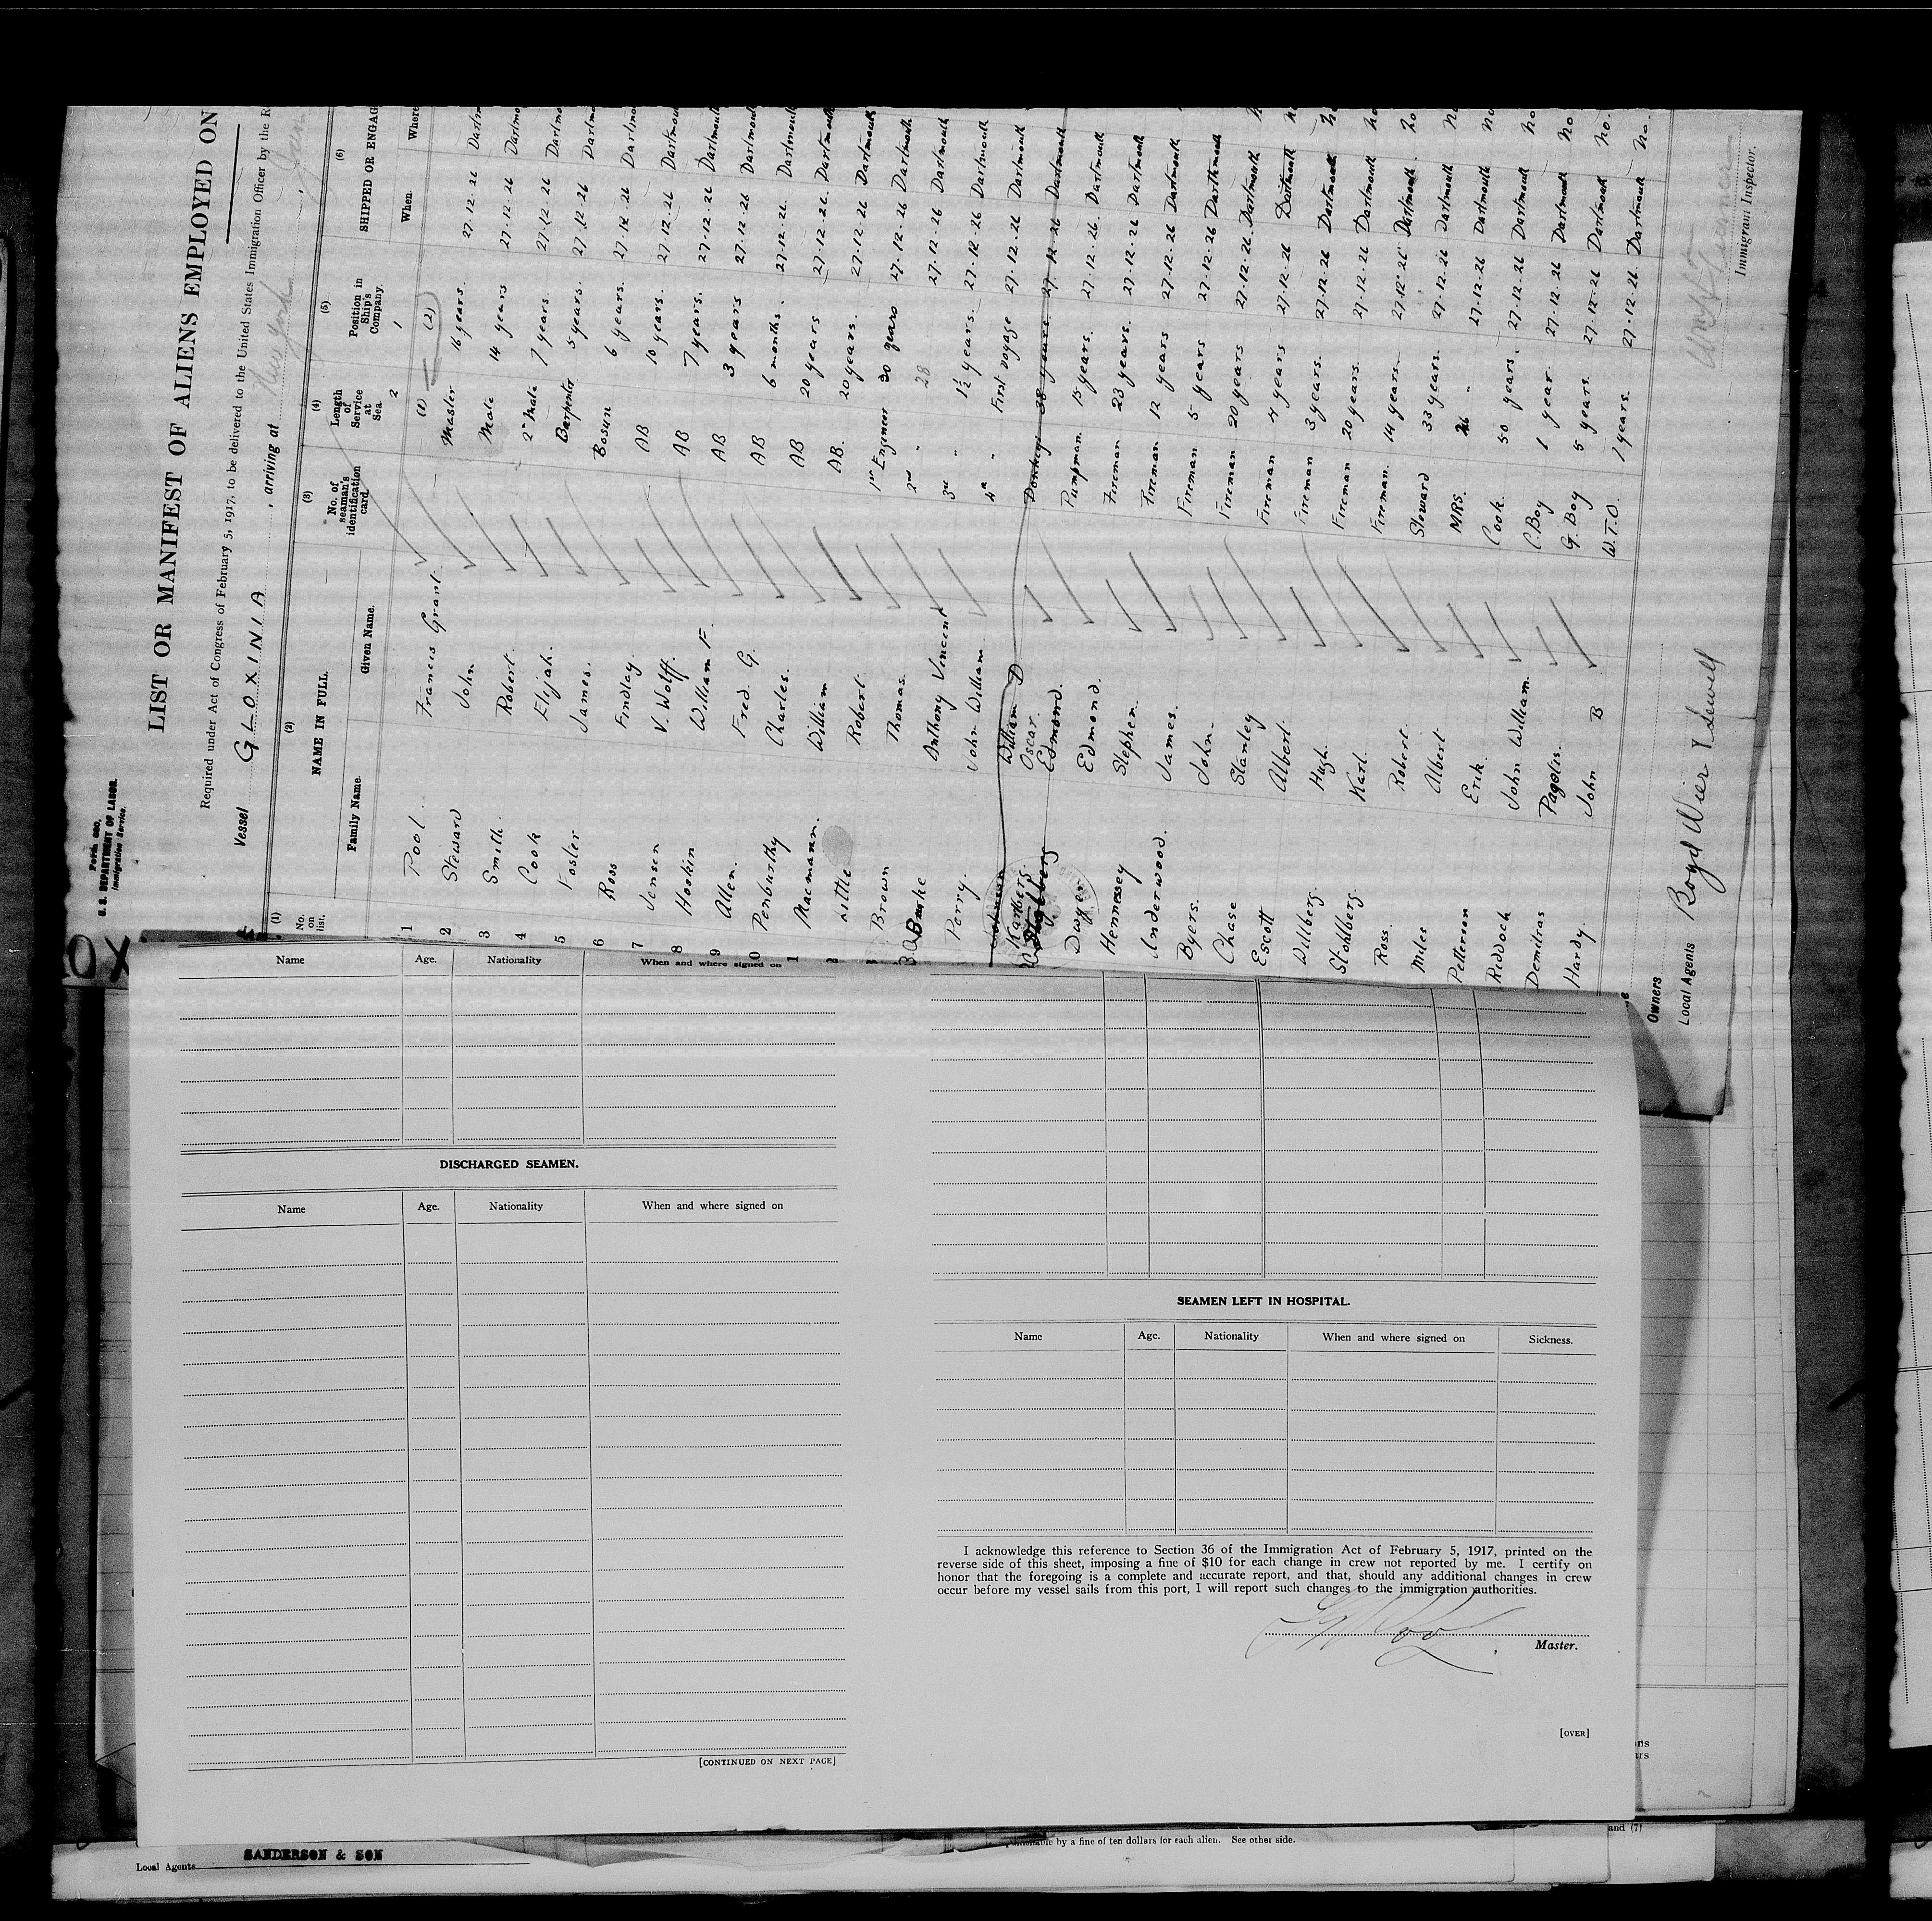 Form 680,
U. S. DEPARTMENT OF LABOR
Immigration Service.
LIST OR MANIFEST OF ALIENS EMPLOYED ON
Required under Act of Congress of February 5, 1917, to be delivered to the United States Immigration Officer by the R
Vessel GLOXINIA, arriving at New York, Jan
(1) (2) (3) (4) (5) (6)
No. on list. NAME IN FULL. No. of seaman's identification card. Length of Service at Sea Position in Ship's Company. SHIPPED OR ENGAG
Family Name. Given Name. 2 1 When. Where
(1) (2)
1 Pool. Francis Grant. Master 16 years. 27-12-26 Dartm
2 Steward John Mate 14 years 27-12-26 Dartmo
3 Smith. Robert. 2nd Mate 7 years. 27-12-26 Dartmo
4 Cook Elijah. Carpenter 5 years. 27-12-26 Dartmo
5 Foster James. Bosun 6 years. 27-12-26 Dartmo
6 Ross Findlay. AB 10 years. 27-12-26 Dartmou
7 Jensen V. Wolff. AB 7 years. 27-12-26 Dartmou
8 Hoskin William F. AB 3 years 27-12-26 Dartmou
9 Allen. Fred. G. AB 6 months. 27-12-26. Dartmouth
0 Penburthy Charles. AB 20 years 27-12-26. Dartmouth
1 Macmann. William AB. 20 years. 27-12-26 Dartmouth
2 Little Robert 1st Engineer 30 years 27-12-26 Dartmouth
3 Brown Thomas. 2nd " 28 27-12-26 Dartmouth
Burke Anthony Vincent 3rd " 1½ years. 27-12-26 Dartmouth
Perry. John William. 4th " First voyage 27-12-26 Dartmouth
Johnson William D Donkey 38 years. 27-12-26 Dartmouth
Karlberg. Oscar. Pumpman 15 years. 27-12-26. Dartmouth
Stahlberg Edmond.
Dwyer Edmond. Fireman 23 years. 27-12-26 Dartmouth
Hennessey Stephen. Fireman 12 years 27-12-26 Dartmouth
Underwood. James. Fireman 5 years 27-12-26 Dartmouth
Byers. John. Fireman 20 years 27-12-26. Dartmouth
Chase Stanley Fireman 4 years 27-12-26 Dartmouth
Escott Albert. Fireman 3 years. 27-12-26 Dartmouth
Dillberg. Hugh. Fireman 20 years. 27-12-26 Dartmouth
Stohlberg. Karl. Fireman. 14 years. 27-12-26 Dartmouth. no
Ross. Robert. Steward 33 years. 27-12-26 Dartmouth no
Miles Albert MRS. 26 " 27-12-26 Dartmouth no
Petterson Erik. Cook. 50 years. 27-12-26 Dartmouth no
Riddock John William. C.Boy 1 year. 27-12-26 Dartmouth no
Demitras Pagolis. G.Boy 5 years. 27-12-26 Dartmouth no.
Hardy. John B W.T.O. 7 years. 27-12-26. Dartmouth no.
Owners
Local Agents Boyd Wier & Sewell
Immigrant Inspector.
Name Age. Nationality When and where signed on
DISCHARGED SEAMEN.
Name Age. Nationality When and where signed on
[CONTINUED ON NEXT PAGE]
SEAMEN LEFT IN HOSPITAL.
Name Age. Nationality When and where signed on Sickness.
I acknowledge this reference to Section 36 of the Immigration Act of February 5, 1917, printed on the
reverse side of this sheet, imposing a fine of $10 for each change in crew not reported by me. I certify on
honor that the foregoing is a complete and accurate report, and that, should any additional changes in crew
occur before my vessel sails from this port, I will report such changes to the immigration authorities.
Master.
[OVER]
by a fine of ten dollars for each alien. See other side.
and (7)
Local Agents SANDERSON & SON